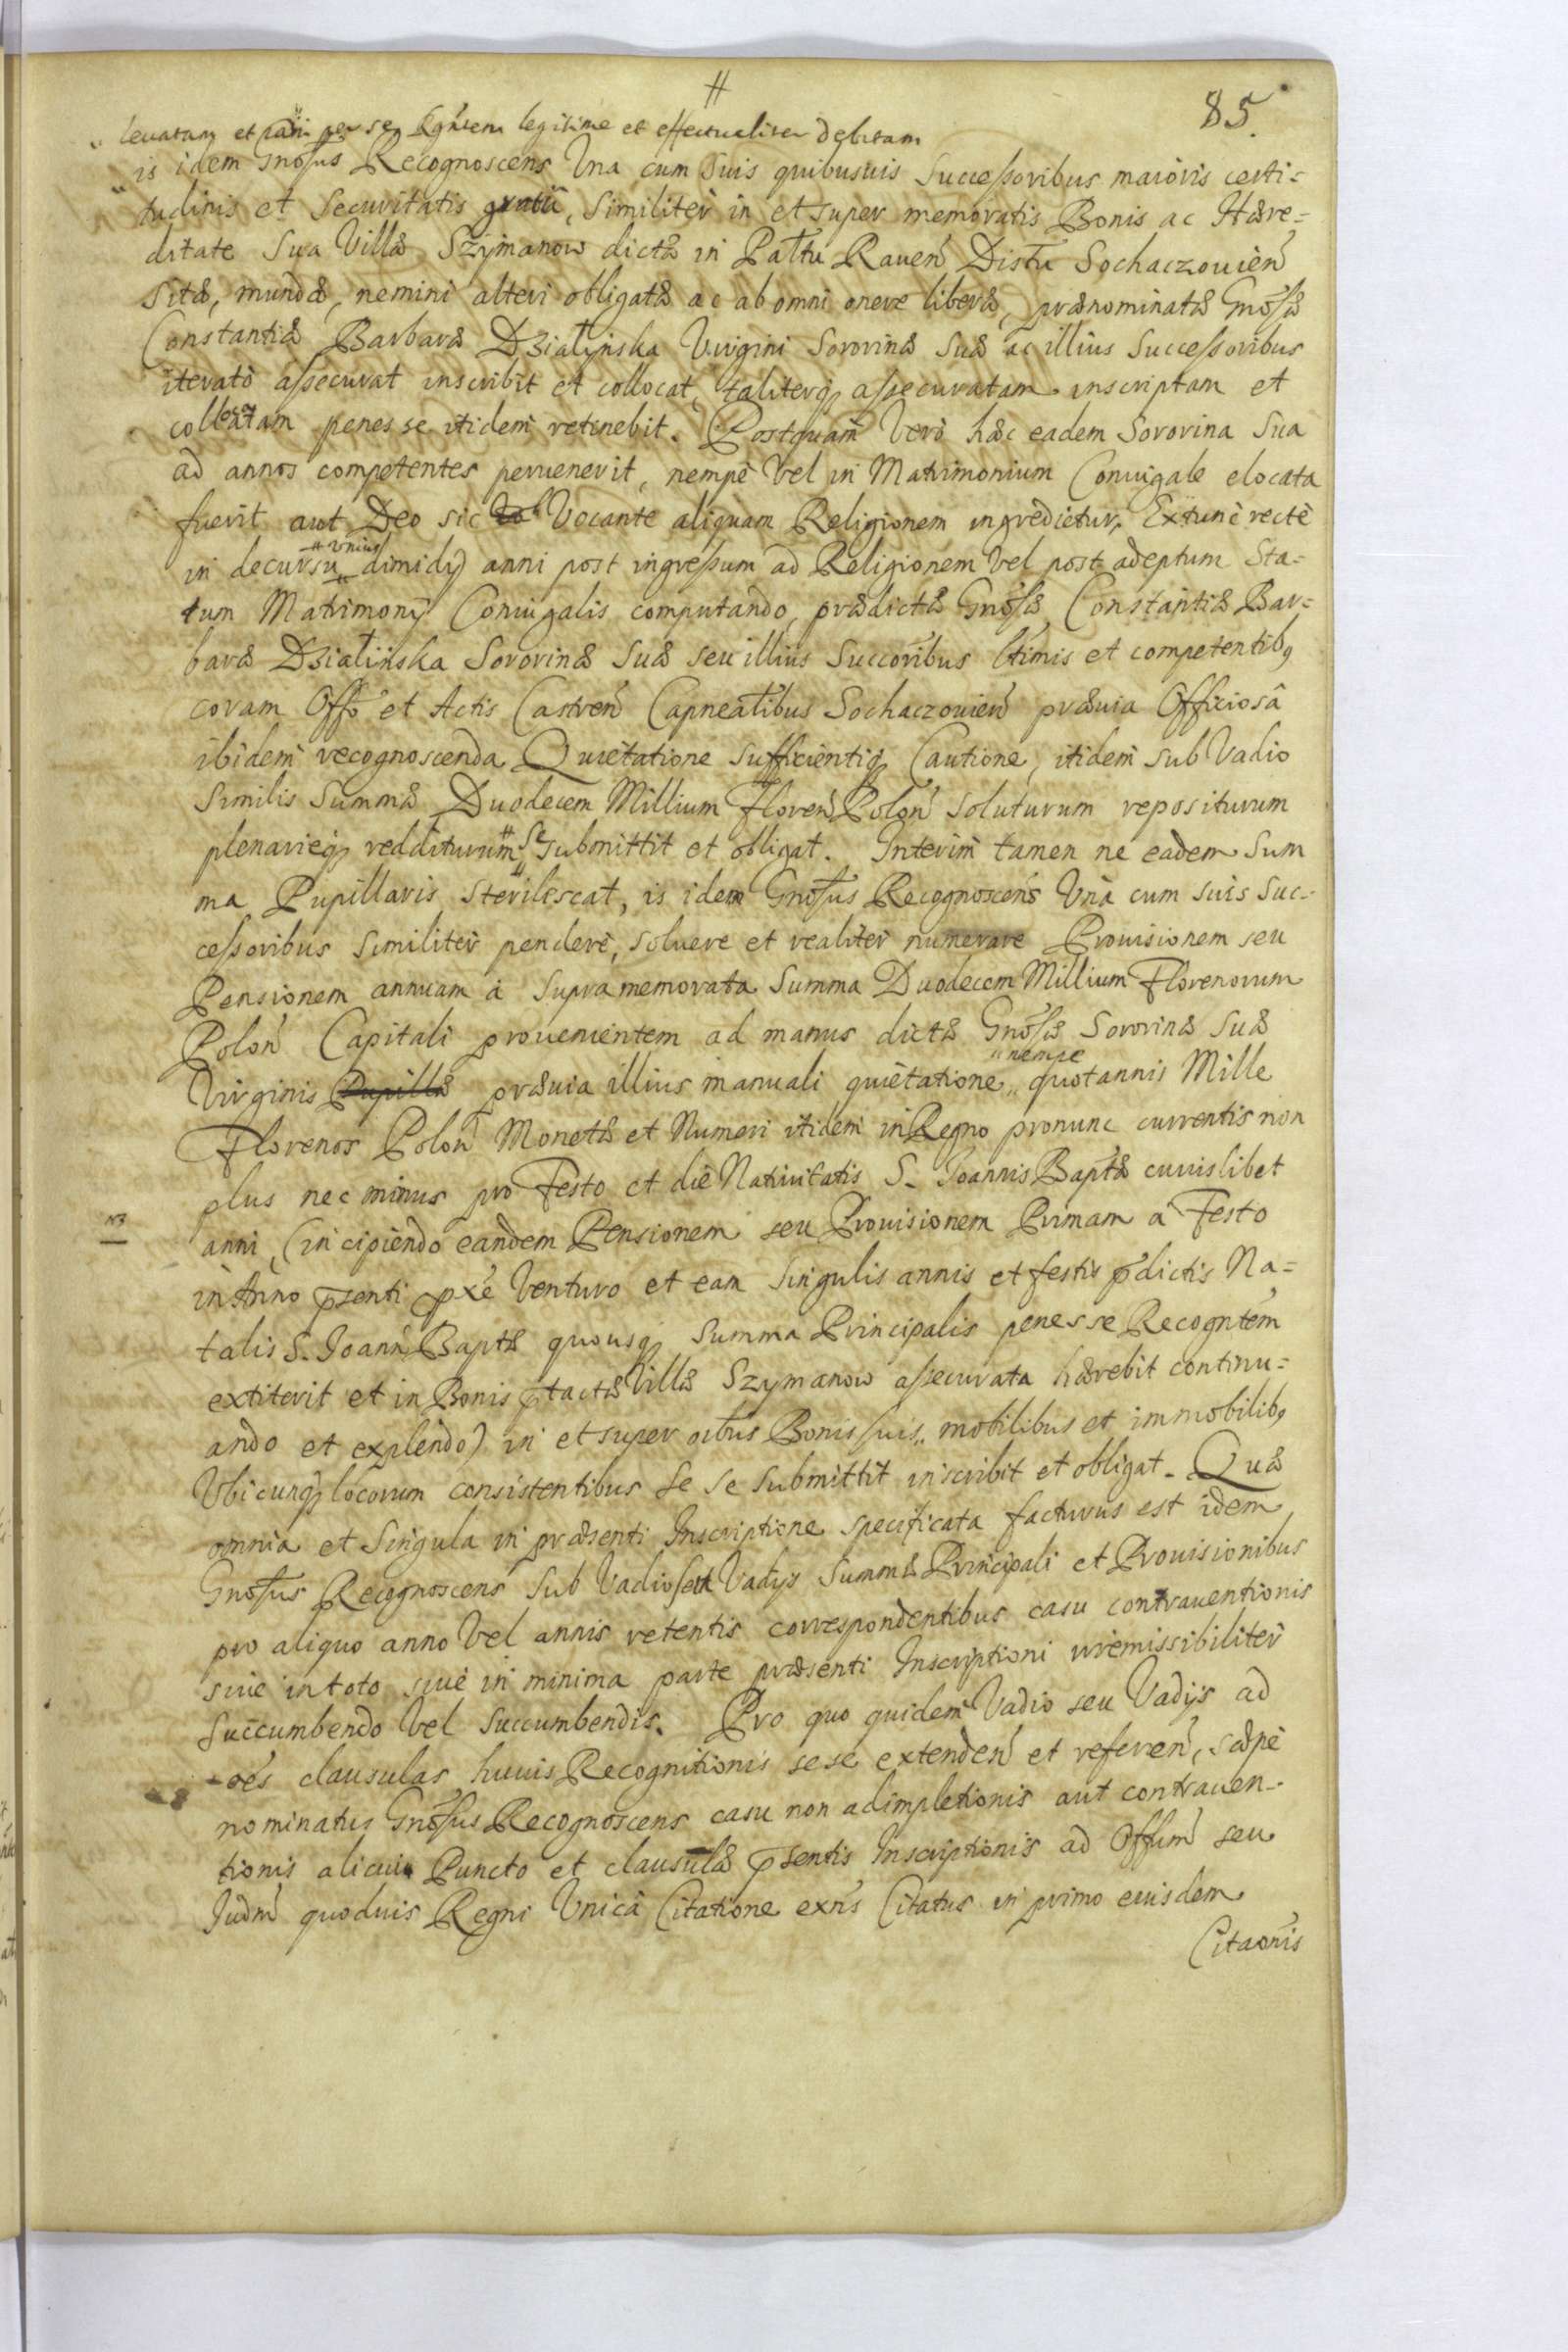 #
85.
" leuatam et per se Rgntem legitime et effectualiter debitam
is idem Gnosus Recognoscens Vna cum Suis quibusuis Successoribus maioris certi=
tudinis et Securitatis gratiâ, Similiter in et super memoratis Bonis ac Hære=
ditate Sua Villæ Szymanow dictæ in Pallu Rauen Distu Sochaczouien
Sitæ, mundæ, nemini alteri obligatæ ac ab omni onere liberæ, prænominatæ Gnosæ
Constantiæ Barbaræ Działynska Virgini Sororinæ Suæ ac illius Successoribus
iterato assecurat inscribit et collocat, taliterq assecuratam inscriptam et
collocatam penes se itidem retinebit. Postquam Vero hæc eadem Sororina Sua
ad annos competentes peruenerit, nempe Vel in Matrimonium Coniugale elocata
fuerit aut Deo sic Vocante aliquam Religionem ingredietur, Extunc recte
in decursu # vnius dimidy anni post ingressum ad Religionem Vel post adeptum Sta=
tum Matrimony Coniugalis computando, prædictæ Gnosæ Constantiæ Bar=
baræ Działinska Sororinæ Suæ seu illius Succoribus ltimis et competentibq
coram Offo et Actis Castren Capnealibus Sochaczouien præuia Officiosâ
ibidem recognoscenda Quietatione Sufficientiq Cautione, itidem sub Vadio
Similis Summæ Duodecem Millium Floren Polon soluturum repositurum
plenarieq redditurum # se submittit et obligat. Interim tamen ne eadem Sum
ma Pupillaris Sterilescat, is idem Gnosus Recognoscens Vnà cum suis Suc=
cessoribus Similiter pendere, soluere et realiter numerare Prouisionem seu
Pensionem annuam à Supra memorata Summa Duodecem Millium Florenorum
Polon Capitali prouenientem ad manus dictæ Gnosæ Sororinæ Suæ
Virginis Pupillæ præuia illius manuali quietatione "nempe quotannis Mille
Florenos Polon Monetæ et Numeri itidem in Regno pronunc currentis non
plus nec minus pro Festo et die Natiuitatis S. Joannis Baptæ cuiuslibet
NB anni, (incipiendo eandem Pensionem seu Prouisionem Primam a Festo
in Anno psenti pxe Venturo et eam Singulis annis et festis pdictis Na=
talis S. Joann Baptæ quousq Summa Principalis penes se Recogntem
extiterit et in Bonis ptactæ Villæ Szymanow assecurata hærebit continu=
ando et explendo) in et super oibus Bonis suis mobilibus et immobilibq
Vbicunq locorum consistentibus Se se submittit inscribit et obligat. Quæ
omnia et Singula in præsenti Inscriptione specificata facturus est idem
Gnosus Recognoscens Sub Vadio seu Vadys Summæ Principali et Prouisionibus
pro aliquo anno Vel annis retentis correspondentibus casu contrauentionis
siue in toto siue in minima parte præsenti Inscriptioni irremissibiliter
succumbendo Vel succumbendis. Pro quo quidem Vadio seu Vadys ad
oes clausulas huius Recognitionis sese extenden et referen, sæpe
nominatus Gnosus Recognoscens casu non adimpletionis aut contrauen=
tionis alicui Puncto et clausulæ psentis Inscriptionis ad Offum seu
Judm quoduis Regni Vnicâ Citatione exns Citatus in primo eiusdem
Citaonis